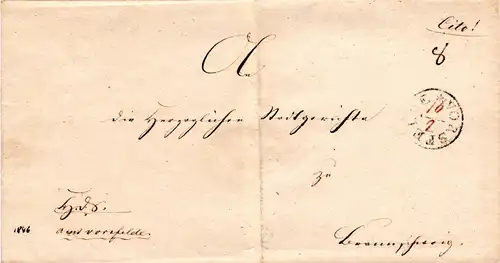 Cito!
8
An
die Herzoglichen Stadtgerichte
zu
Braunschweig.
H.d.S.
Amt vorsfelde.
1846
VORSFELDE
10/2